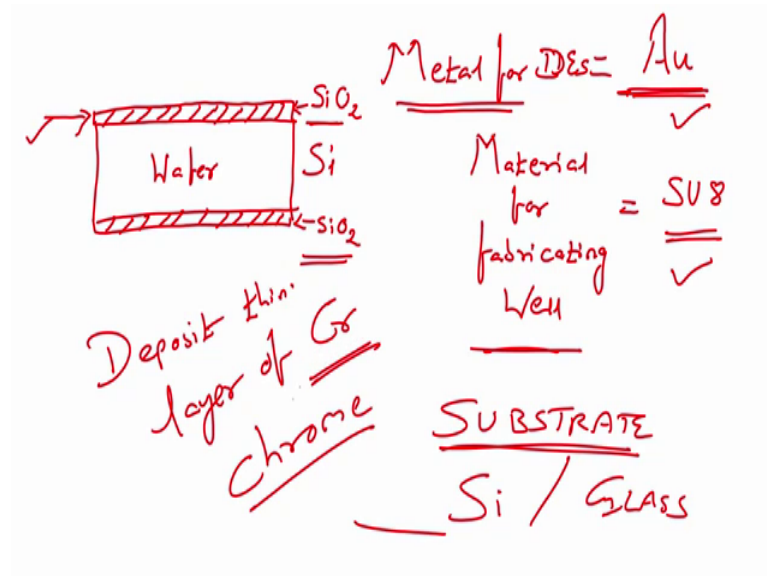 Metal for IDEs = Au
SiO2
Wafer
Si
SiO2
Material
for
fabricating
Well
= SU8
Deposit thin
layer of Cr
Chrome
SUBSTRATE
Si / GLASS